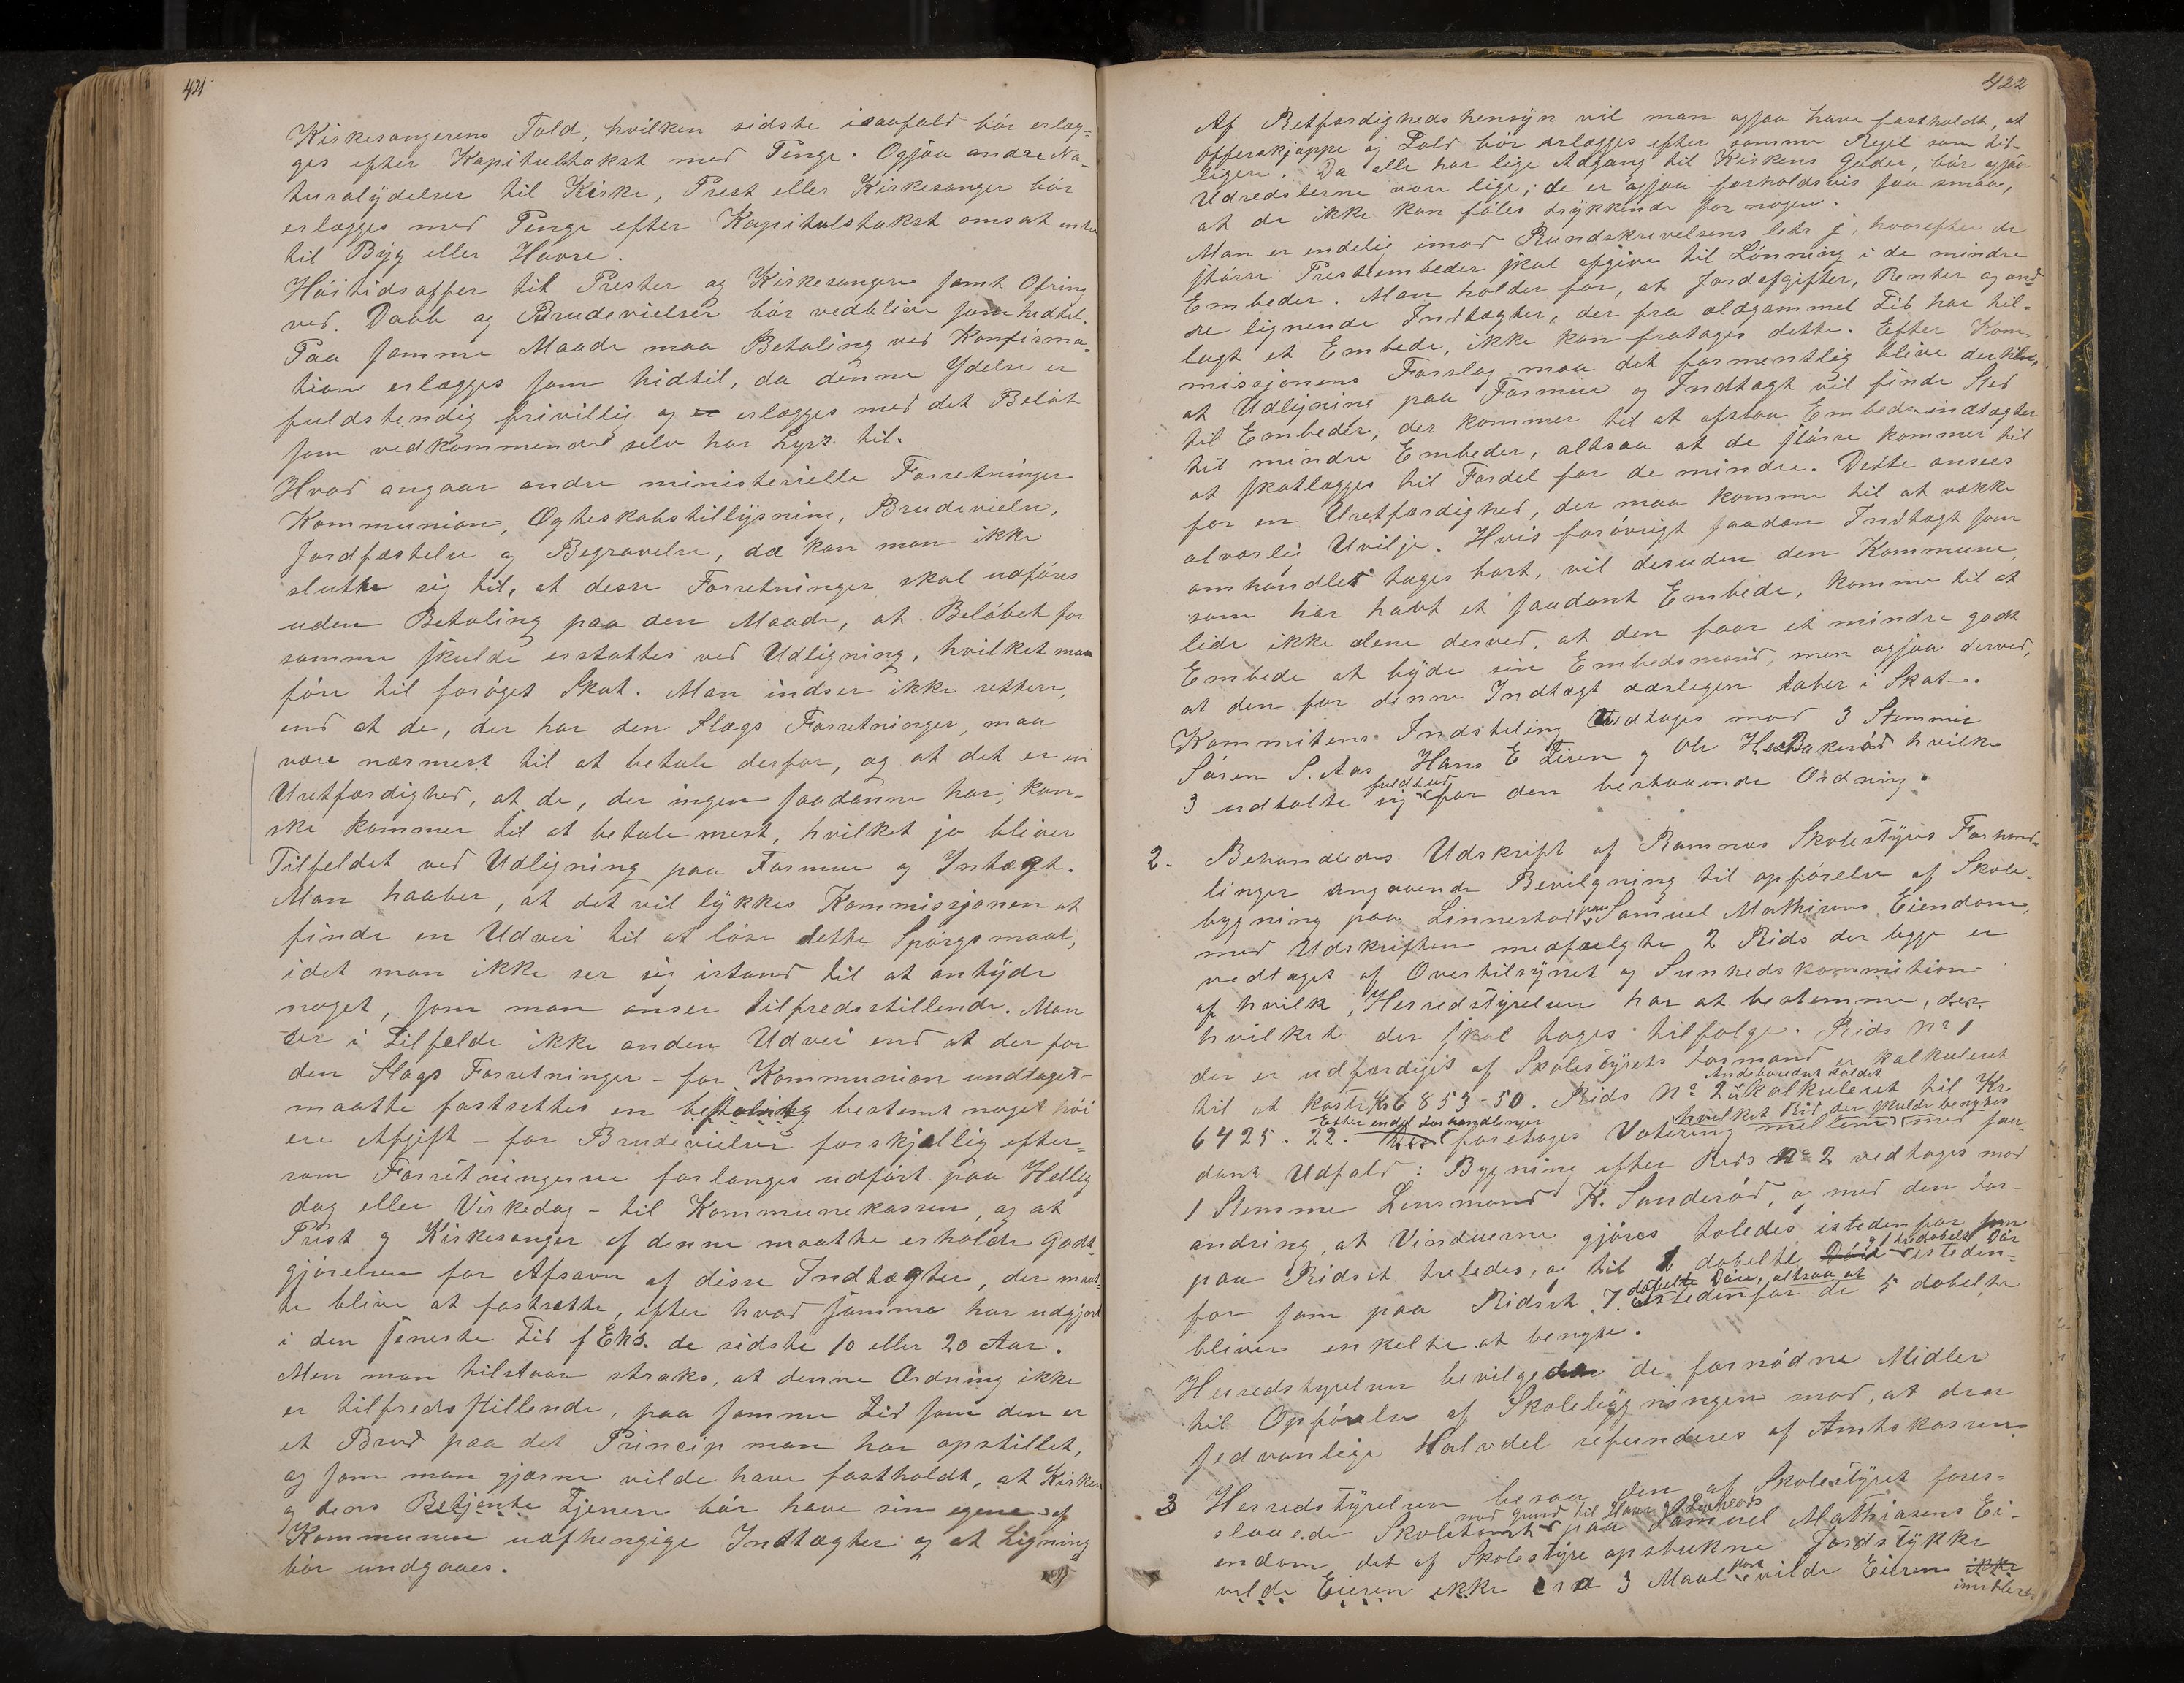 421
Kirkesangerens Told, hvilken sidste isaafald bör erlæg-
ges efter Kapitelstakst med Penge. Ogsaa andre Na-
turalydelser til Kirke, Prest eller Kirkesanger bör
erlægges med Penge efter Kapitulstakst omsat enten
til Byg eller Havre.
Höitidsoffer til Prester og Kirkesangere samt Ofring
ved Daab og Brudevielser bör vedblive som hidtil.
Paa samme Maade maa Betaling ved Konfirma-
tion erlægges som hidtil, da denne Ydelse er
fuldstendig frivillig og er erlægges med det Belöb
som vedkommende selv har Lyst til.
Hvad angaar andre ministerielle Forretninger
Kommunion, Ægteskabstillysning, Brudevielse,
Jordfæstelse og Begravelse, da kan man ikke
slutte sig til, at disse Forretninger skal udföres
uden Betaling paa den Maade, at Belöbet for
samme skulde erstattes ved Udligning, hvilket maa
före til foröget Skat. Man indser ikke rettere,
end at de, der har den Slags Forretninger, maa
være nærmest til at betale derfor, og at det er en
Uretfærdighed, at de, der ingen saadanne har, kan-
ske kommer til at betale mest, hvilket jo bliver
Tilfeldet ved Udligning paa Formue og Intægt.
Man haaber, at det vil lykkes Kommissjonen at
finde en Udvei til at löse dette Spörgsmaal,
idet man ikke ser sig istand til at antyde
noget, som man anser tilfredsstillende. Man
ser i Tilfelde ikke anden Udvei end at der for
den Slags Forretninger - for Kommunion undtaget -
maatte fastsettes en betaling bestemt noget höi
ere Afgift - for Brudevielser forskjellig efter-
som Forretningerne forlanges udfört paa Hellig
dag eller Virkedag - til Kommunekassen, og at
Prest og Kirkesanger af denne maatte erholde Godt-
gjörelsen for Afsavn af disse Indtægter, der maat-
te blive at fastsætte, efter hvad samme har udgjort
i den seneste Tid f Eks. de sidste 10 eller 20 Aar.
Men man tilstaar straks, at denne Ordning ikke
er tilfredsstillende, paa samme Tid som den er
et Brud paa det Princip man har opstillet,
og som man gjerne vilde have fastholdt, at Kirken
og dens Betjente Tjenere bör have sin egene af
Kommunen uafhengige Indtægter og at Ligning
bör undgaaes.
422
Af Retfærdighedshensyn vil man ogsaa have fastholdt, at
Offerskjæppe og Told bör erlægges efter samme Regel som tid-
ligere. Da alle har lige Adgang til Kirkens Goder, bör ogsaa
Udredslerne være lige; de er ogsaa forholdsvis saa smaa,
at de ikke kan föles trykkende for nogen.
Man er endelig imod Rundskrivelsens litr j, hvorefter de
större Prestembeder skal afgive til Lönning i de mindre
Embeder. Man holder for, at Jordafgifter, Renter og and
re lignende Indtægter, der fra oldgammel Tid har til-
lagt et Embede, ikke kan fratages dette. Efter Kom-
missjonens Forslag maa det formentlig blive derhen,
at Udligning paa Formue og Indtægt vil finde Sted
til Embeder, der kommer til at afstaa Embedsindtægter
til mindre Embeder, altsaa at de större kommer til
at skatlægges til Fordel for de mindre. Dette ansees
for en Uretfærdighed, der maa komme til at vække
alvorlig Uvilje. Hvis forövrigt saadan Indtægt som
omhandlet tages bort, vil desuden den Kommune,
som har havt et saadant Embede, komme til at
lide ikke alene derved, at den faar et mindre godt
Embede at byde sin Embedsmand, men ogsaa derved,
at den for denne Indtægt aarlegen taber i Skat.
Kommitens Indstiling Vedtages mod 3 Stemmer
Sören S. Aas, Hans E Liven og Ole H. Bakeröd hvilke
fuldtud
3 udtalte sig for den bestaaende Ordning.
2. Behandledes Udskrift af Ramnas Skolestyres Forhand-
linger angaaende Bevilgning til opförelse af Skole-
bygning paa Linnestad paa Samuel Mathisens Eiendom,
med Udskriften medfælgte 2 Rids der begge er
vedtaget af Overtilsynet og Sunnedskommition
af hvilk, Herredstyrelsen har at bestemme, der
hvilket der skal tages tilfølge. Rids No 1
der er udfærdiget af Skolestyrets Formand er kalkuleret
til at koste Kr 6853-50. Rids No 2 er kalkuleret til Kr
Efter endel Forhandlinger hvilket Rid der skulde benyttes
6425.22. foretages Votering mellem med saa-
dant Udfald: Bygning efter Rids No 2 vedtages mod
1 Stemme Lensmand K. Sanderöd, og med den For-
andring, at Vinduerne gjöres toledes istedenfor som
paa Ridset treledes, og til 2 dobelte Döre isteden-
dobelte Döre, altsaa at
for som paa Ridset 7. istedenfor de 5 dobelte
bliver enkelte at bengte.
Herredstyrelsen bevilgede de fornödne Midler
til Opförelse af Skolebyggningen mod, at den
sedvanlige Halvdel refunderes af Amtskassen.
3 Herredstyrelsen besaa den af Skolestyret fores-
slaaede Skoletomt paa Samuel Mathiasens Ei-
endom, det af Skolestyre opstukne Jordstykke
vilde Eieren ikke 3 Maal vilde Eieren ikke